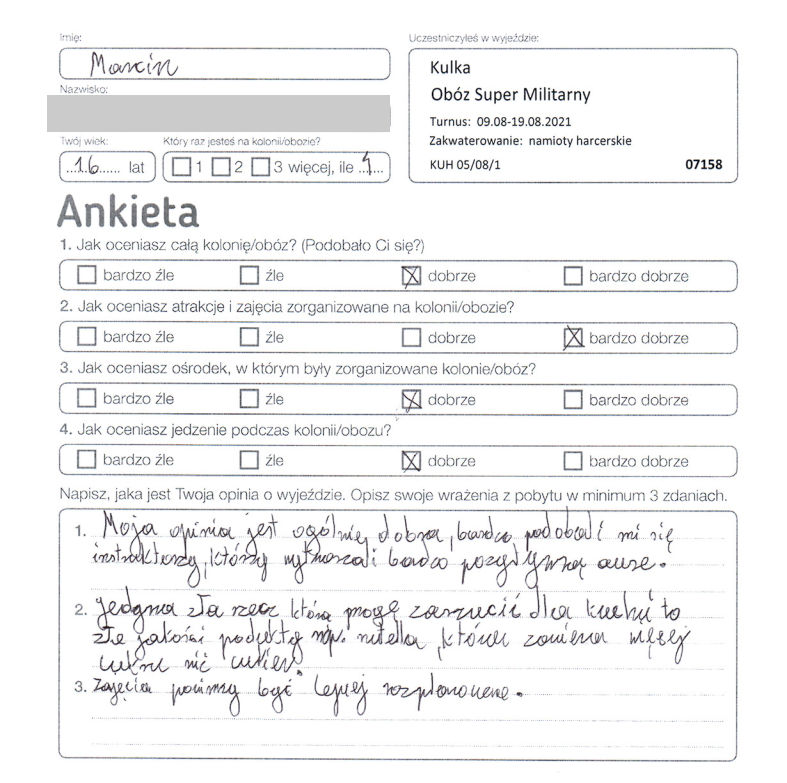 Imię:
Marcin
Nazwisko:
Twój wiek:
16 lat
Który raz jesteś na kolonii/obozie?
1 2 3 więcej, ile
Uczestniczyłeś w wyjeździe:
Kulka
Obóz Super Militarny
Turnus: 09.08-19.08.2021
Zakwaterowanie: namioty harcerskie
KUH 05/08/1 07158
Ankieta
1. Jak oceniasz całą kolonię/obóz? (Podobało Ci się?)
bardzo źle źle dobrze bardzo dobrze
2. Jak oceniasz atrakcje i zajęcia zorganizowane na kolonii/obozie?
bardzo źle źle dobrze bardzo dobrze
3. Jak oceniasz ośrodek, w którym były zorganizowane kolonie/obóz?
bardzo źle źle dobrze bardzo dobrze
4. Jak oceniasz jedzenie podczas kolonii/obozu?
bardzo źle źle dobrze bardzo dobrze
Napisz, jaka jest Twoja opinia o wyjeździe. Opisz swoje wrażenia z pobytu w minimum 3 zdaniach.
1. Moja opinia jest ogólnie dobra, bardzo podobali mi się
instruktorzy, którzy wytwarzali bardzo pozytywną aurę.
2. Jedyna zła rzecz którą mogę zarzucić dla kuchni to
złe jakości produkty np. nutella, która zawiera więcej
cukru nić cukier.
3. Zajęcia powinny być lepiej rozplanowane.